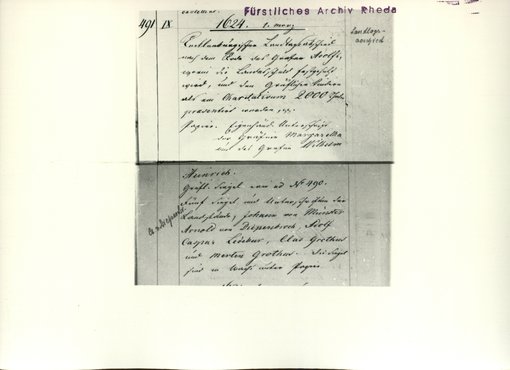 Fürstliches Archiv Rheda
491 IX. 1624. 2. März
Landtags-
Tecklenburgischer Landtagsabschied
nach dem Tode des Grafen Adolf,
worin die Landesschuld festgesetzt
wird, und den Gräflichen Kindern
als ein Charitativum 2000
praesentirt worden
Papier. Eigenhänd. Unterschrift
der Gräfin Margaretha
und des Grafen Wilhelm
Heinrich.
Gräfl. Siegel wie ad No 490.
Fünf Siegel und Unterschriften der
Landstände, Johann von Münster
Arnold von Diepenbroick, Adolf
Caspar Ledebur, Clas Grothus
und Merten Grothus. Die Siegel
sind in Wachs unter Papier.